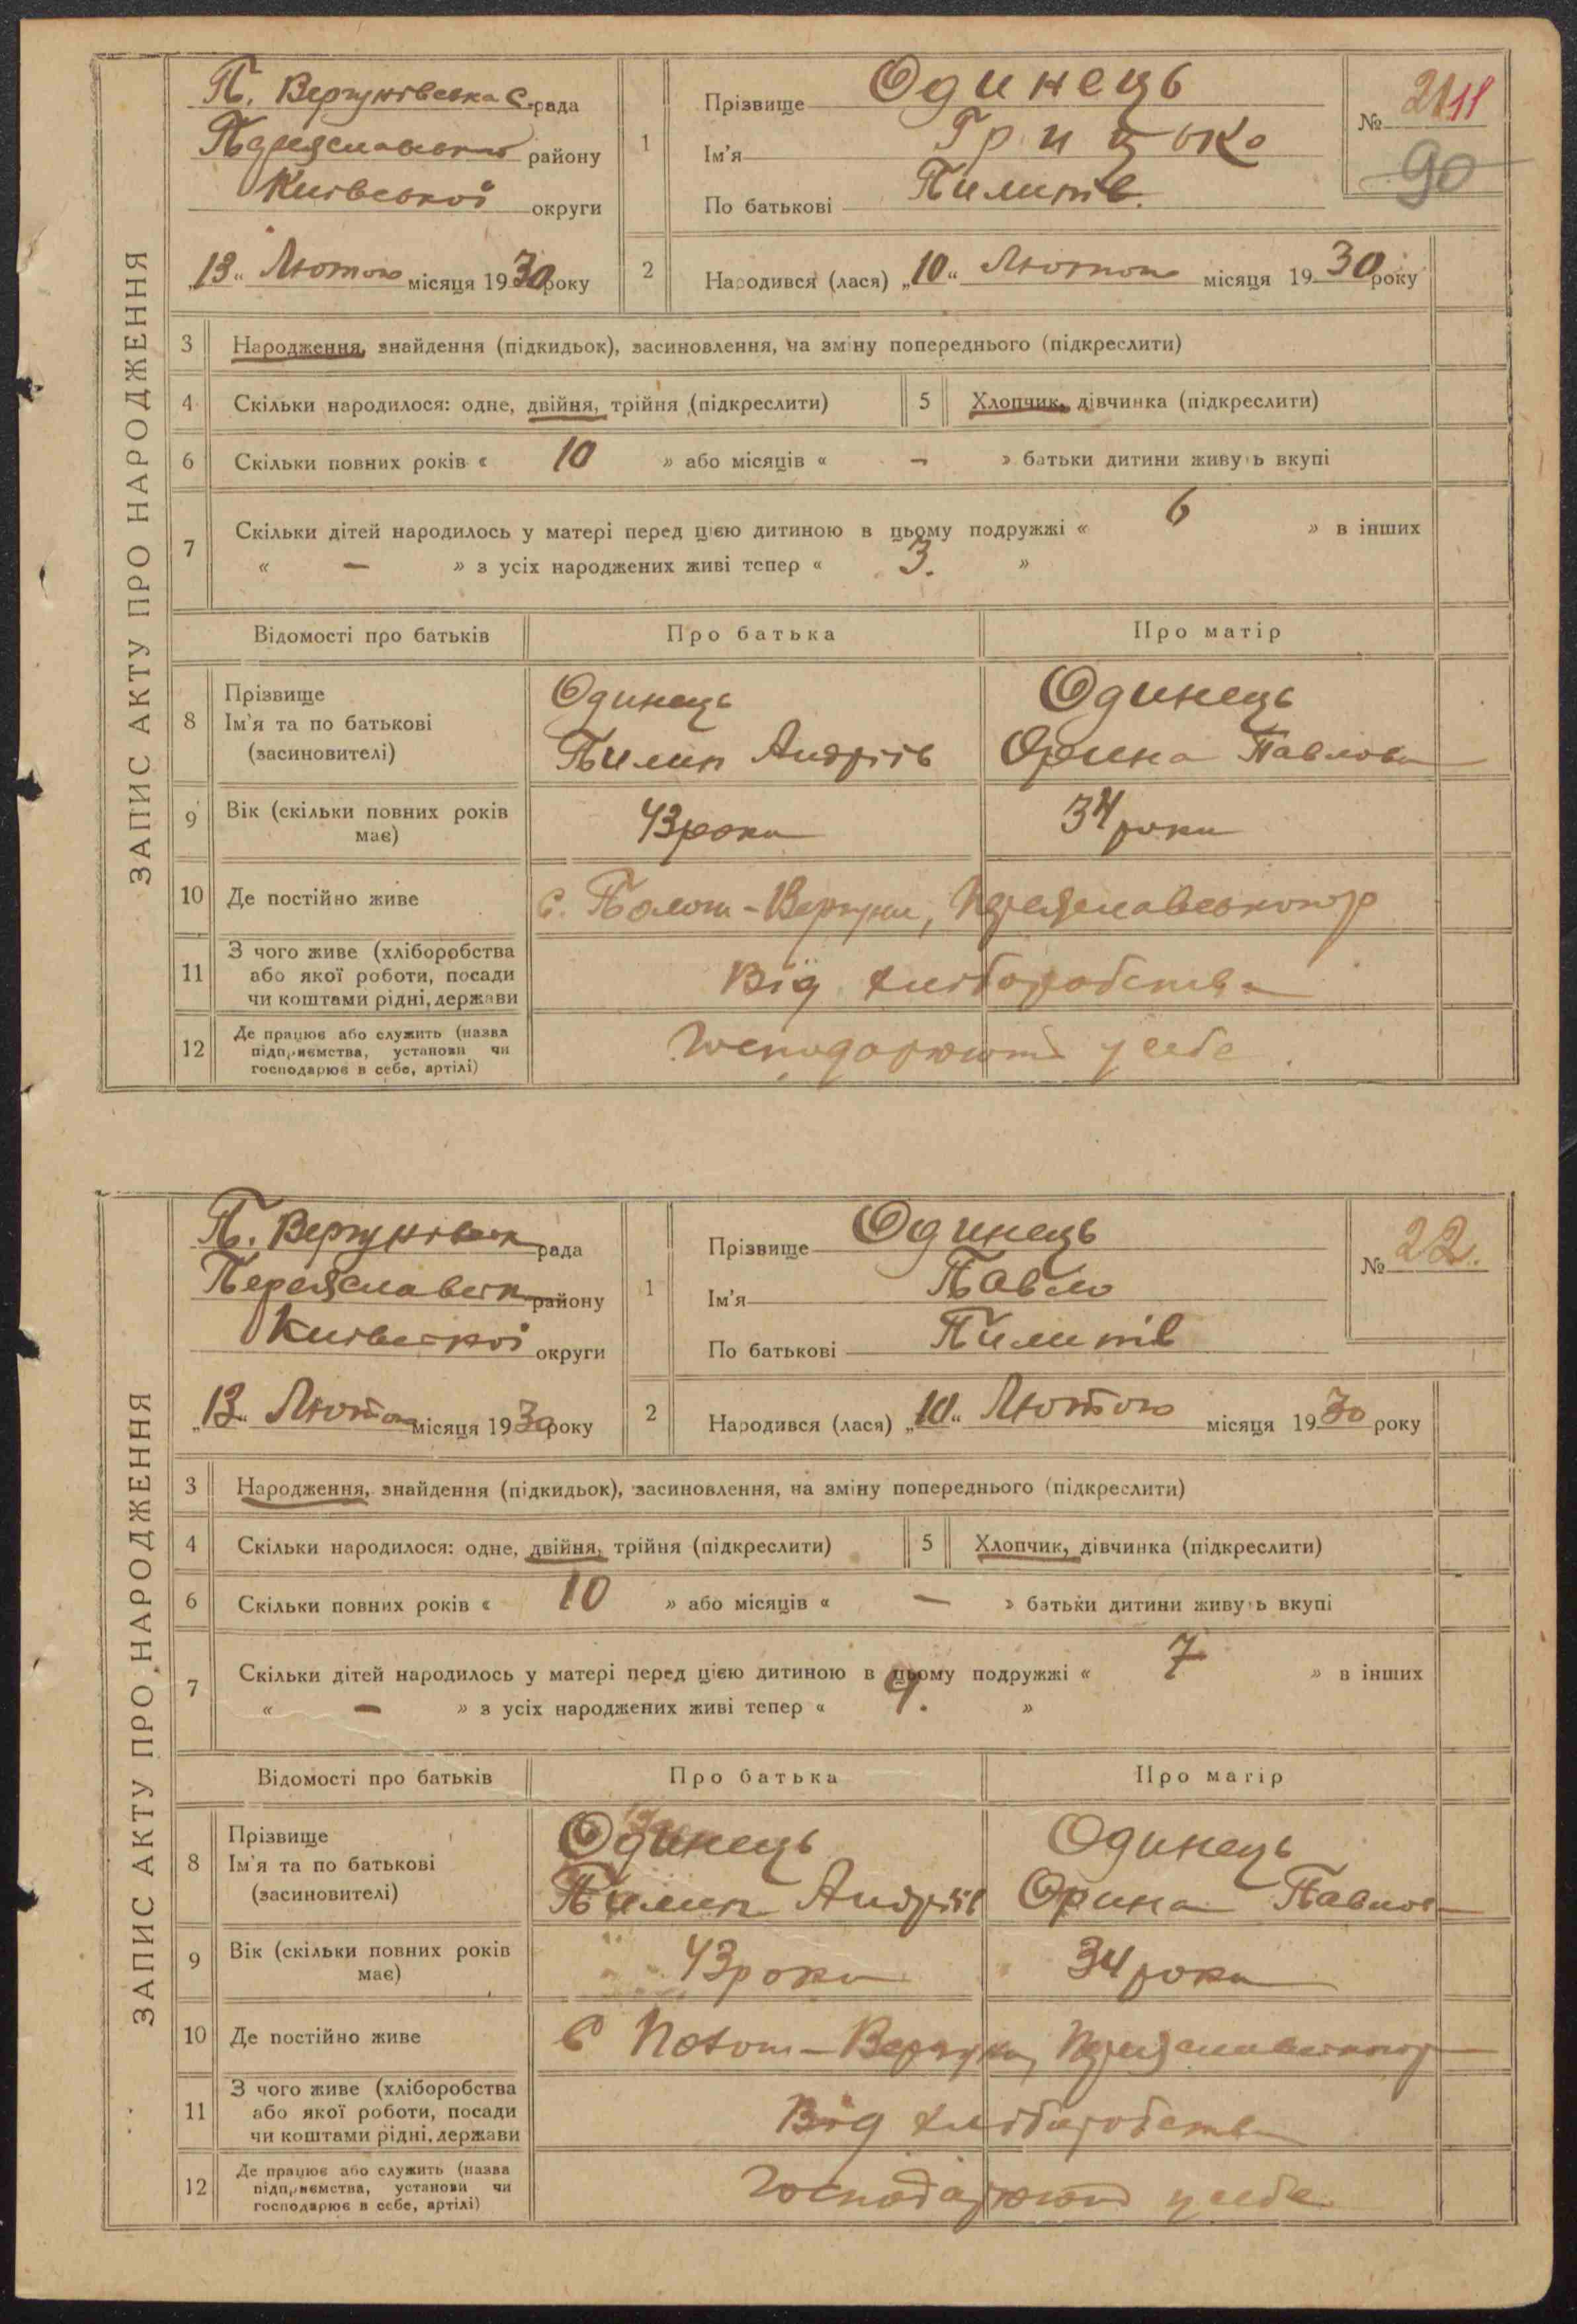 ЗАПИС АКТУ ПРО НАРОДЖЕННЯ
П. Вергунівська С. рада
Переяславського району
Київської округи
„13“ Лютого місяця 1930 року
1 Прізвище Одинець
Ім'я Грицько
По батькові Пилипів.
№ 21 18
90
2 Народився (лася) „10“ Лютого місяця 1930 року
3 Народження, знайдення (підкидьок), засиновлення, на зміну попереднього (підкреслити)
4 Скільки народилося: одне, двійня, трійня (підкреслити) 5 Хлопчик, дівчинка (підкреслити)
6 Скільки повних років « 10 » або місяців « — » батьки дитини живуть вкупі
7 Скільки дітей народилось у матері перед цією дитиною в цьому подружжі « 6 » в інших
« — » з усіх народжених живі тепер « 3. »
Відомості про батьків Про батька Про матір
8 Прізвище
Ім'я та по батькові
(засиновителі)
Одинець
Пилип Андріїв
Одинець
Орина Павлова
9 Вік (скільки повних років
має)
43 роки 34 роки
10 Де постійно живе с. Полот-Вергуни, Переяславського р
11 З чого живе (хліборобства
або якої роботи, посади
чи коштами рідні, держави
Від хліборобства
12 Де працює або служить (назва
підприємства, установи чи
господарює в себе, артілі)
Господарюють у себе.
ЗАПИС АКТУ ПРО НАРОДЖЕННЯ
П. Вергунівськ рада
Переяславськ району
Київської округи
„13“ Лютого місяця 1930 року
1 Прізвище Одинець
Ім'я Павло
По батькові Пилипів
№ 22.
2 Народився (лася) „10“ Лютого місяця 1930 року
3 Народження, знайдення (підкидьок), засиновлення, на зміну попереднього (підкреслити)
4 Скільки народилося: одне, двійня, трійня (підкреслити) 5 Хлопчик, дівчинка (підкреслити)
6 Скільки повних років « 10 » або місяців « — » батьки дитини живуть вкупі
7 Скільки дітей народилось у матері перед цією дитиною в цьому подружжі « 7 » в інших
« — » з усіх народжених живі тепер « 4. »
Відомості про батьків Про батька Про матір
8 Прізвище
Ім'я та по батькові
(засиновителі)
Одинець
Пилип Андріїв
Одинець
Орина Павлов
9 Вік (скільки повних років
має)
43 роки 34 роки
10 Де постійно живе с Полот-Вергуни, Переяславського р
11 З чого живе (хліборобства
або якої роботи, посади
чи коштами рідні, держави
Від хліборобства
12 Де працює або служить (назва
підприємства, установи чи
господарює в себе, артілі)
Господарюють у себе